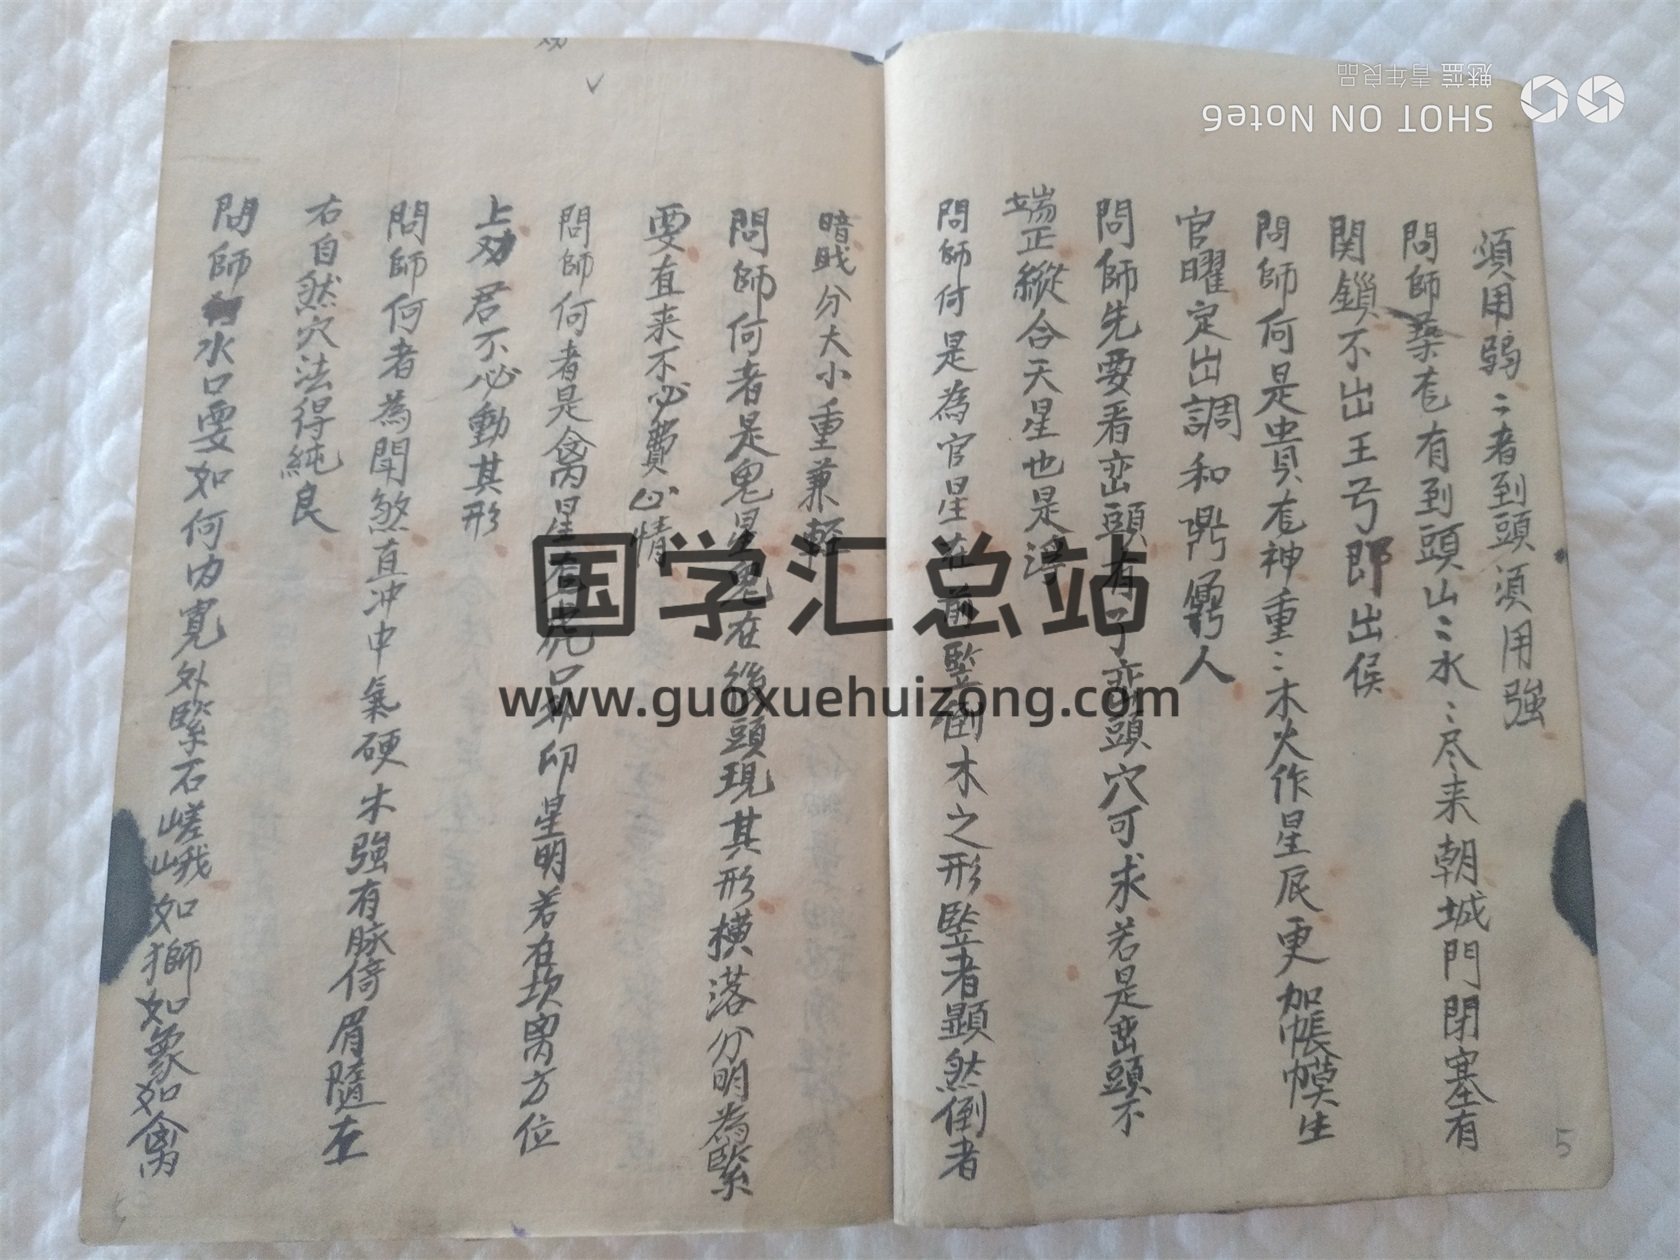 須用弱〻者到頭須用強
問師葬老有到頭山〻水〻尽来朝城門閉塞有
関鎖不出王亏即出侯
問師何是貴老神重〻木火作星辰更加帳幙生
官曜定出調和鼎鼐人
問師先要看巒頭有了巒頭穴可求若是巒頭不
端正縱合天星也是浮
問師何是為官星在前監倒木之形監者顯然倒者
暗戝分大小重兼輕
問師何者是鬼星鬼在後頭現其形橫落分明為緊
要直来不必費心情
問師何者是禽星石虎口印星明若在坎离方位
上劝君不必動其形
問師何者為聞煞直冲中氣硬木強有脉倚眉隨左
右自然穴法得純良
問師水口要如何内寬外緊石嵯峨如獅如象如禽
国学汇总站
www.guoxuehuizong.com
SHOT ON Note6
魅蓝 青年良品
5